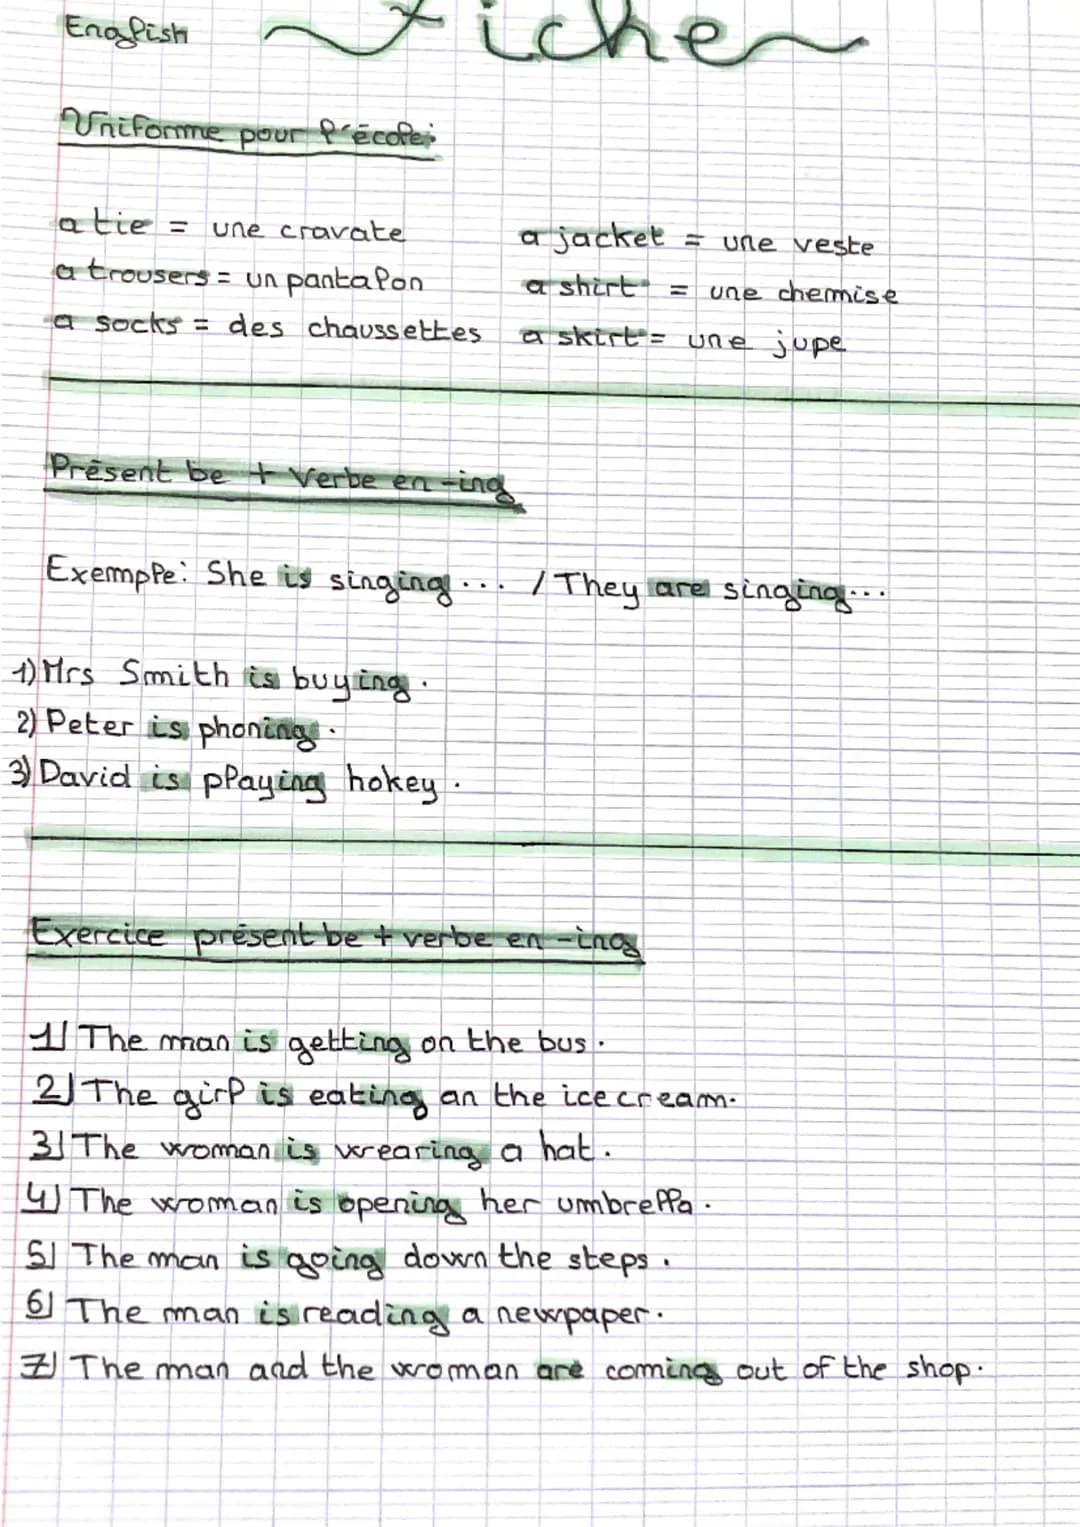 English Fiche
Uniforme pour l'école:
a tie = une cravate
a trousers = un pantalon
a socks = des chaussettes
a jacket = une veste
a shirt = une chemise
a skirt = une jupe
Présent be + verbe en -ing
Exemple: She is singing... / They are singing...
1) Mrs Smith is buying.
2) Peter is phoning.
3) David is playing hokey.
Exercice présent be + verbe en -ing
1) The man is getting on the bus.
2) The girl is eating an the ice cream.
3) The woman is wearing a hat.
4) The woman is opening her umbrella.
5) The man is going down the steps.
6) The man is reading a newpaper.
7) The man and the woman are coming out of the shop.